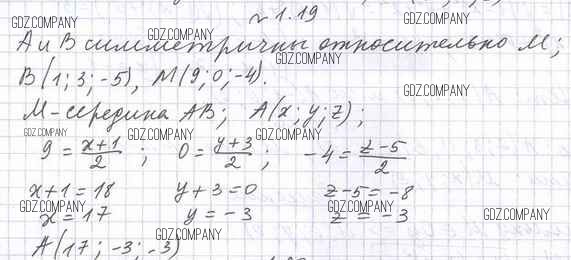 № 1.19
GDZ.COMPANY GDZ.COMPANY
А и В симметричны относительно М;
GDZ.COMPANY
GDZ.COMPANY
В(1; 3; -5), М(9; 0; -4).
GDZ.COMPANY
М-середина АВ; А(x; y; z);
GDZ.COMPANY GDZ.COMPANY GDZ.COMPANY
9 = (x+1)/2 ; 0 = (y+3)/2 ; -4 = (z-5)/2
x+1 = 18 y+3 = 0 z-5 = -8
GDZ.COMPANY GDZ.COMPANY GDZ.COMPANY GDZ.COMPANY
x = 17 y = -3 z = -3
GDZ.COMPANY
А(17; -3; -3)